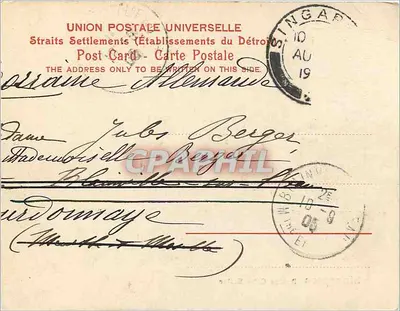 UNION POSTALE UNIVERSELLE
Straits Settlements (Établissements du Détroi
Post Card - Carte Postale
THE ADDRESS ONLY TO BE WRITTEN ON THIS SIDE.
SINGAP
10
AU
19
Allemande
dame Jules Berger
Mademoiselle Berger
CPAPHIL
Blainville sur l'eau
urdonnaye
(Meurthe et Moselle)